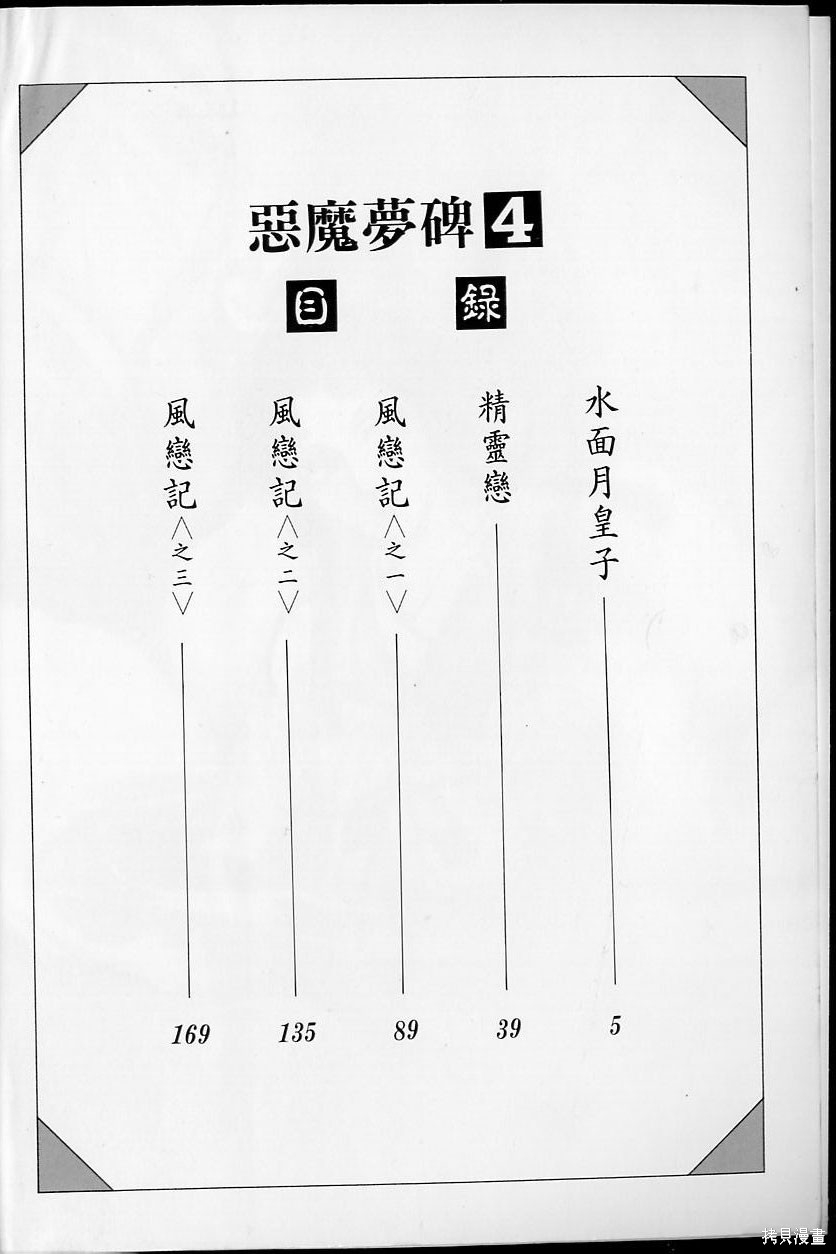 惡魔夢碑4
目錄
水面月皇子
5
精靈戀
39
風戀記〈之一〉
89
風戀記〈之二〉
135
風戀記〈之三〉
169
拷貝漫畫